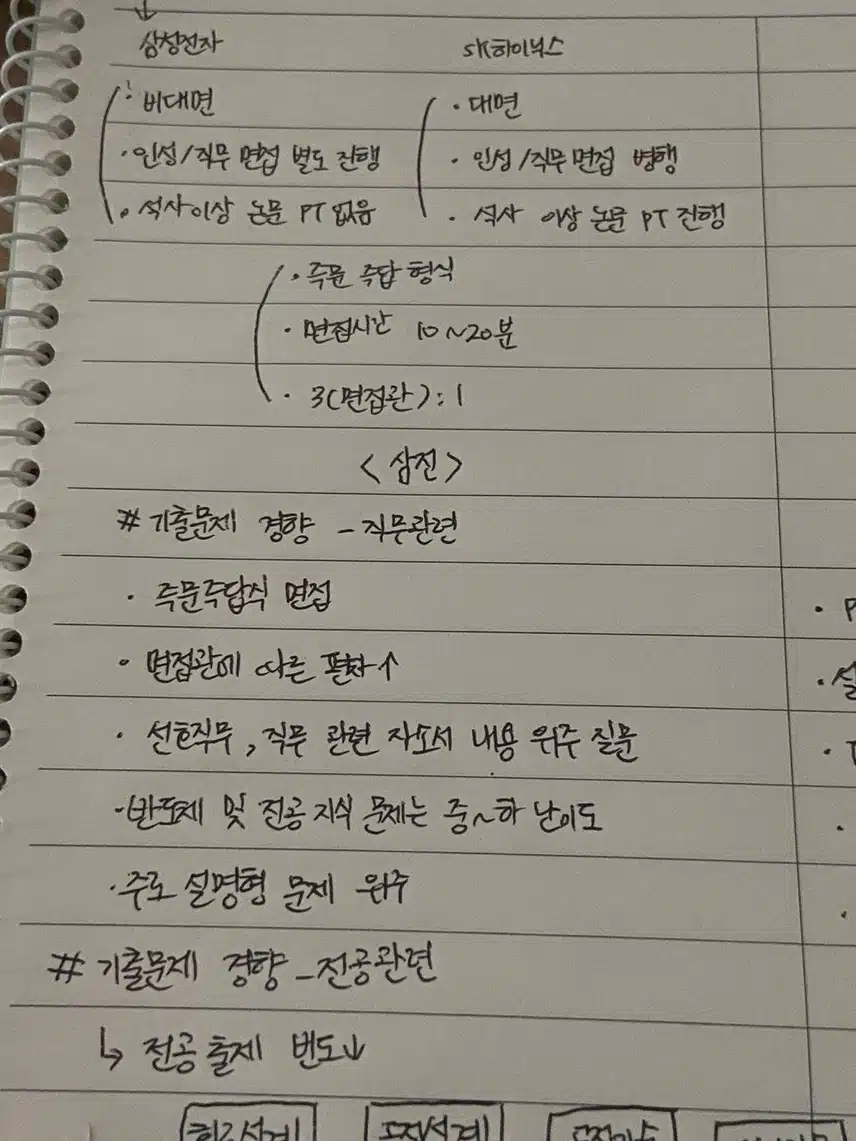 삼성전자 sk하이닉스
· 비대면 · 대면
· 인성/직무 면접 별도 진행 · 인성/직무 면접 병행
· 석사이상 논문 PT 없음 · 석사 이상 논문 PT 진행
· 즉문 즉답 형식
· 면접시간 10~20분
· 3(면접관):1
<삼전>
# 기출문제 경향 - 직무관련
· 즉문즉답식 면접
· 면접관에 따른 편차↑
· 선호직무, 직무 관련 자소서 내용 위주 질문
· 반도체 및 전공 지식 문제는 중~하 난이도
· 주로 설명형 문제 위주
# 기출문제 경향 - 전공관련
↳ 전공 출제 빈도↓
회로설계 공정설계